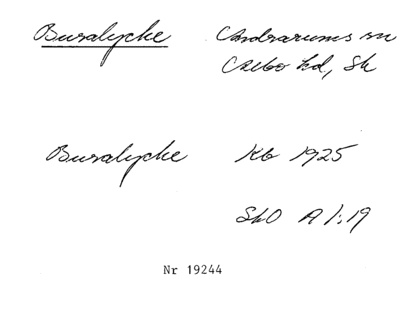 Buralycke Andrarums sn
Albo hd, Sk
Buralycke Kb 1925
SkO A 1:19
Nr 19244